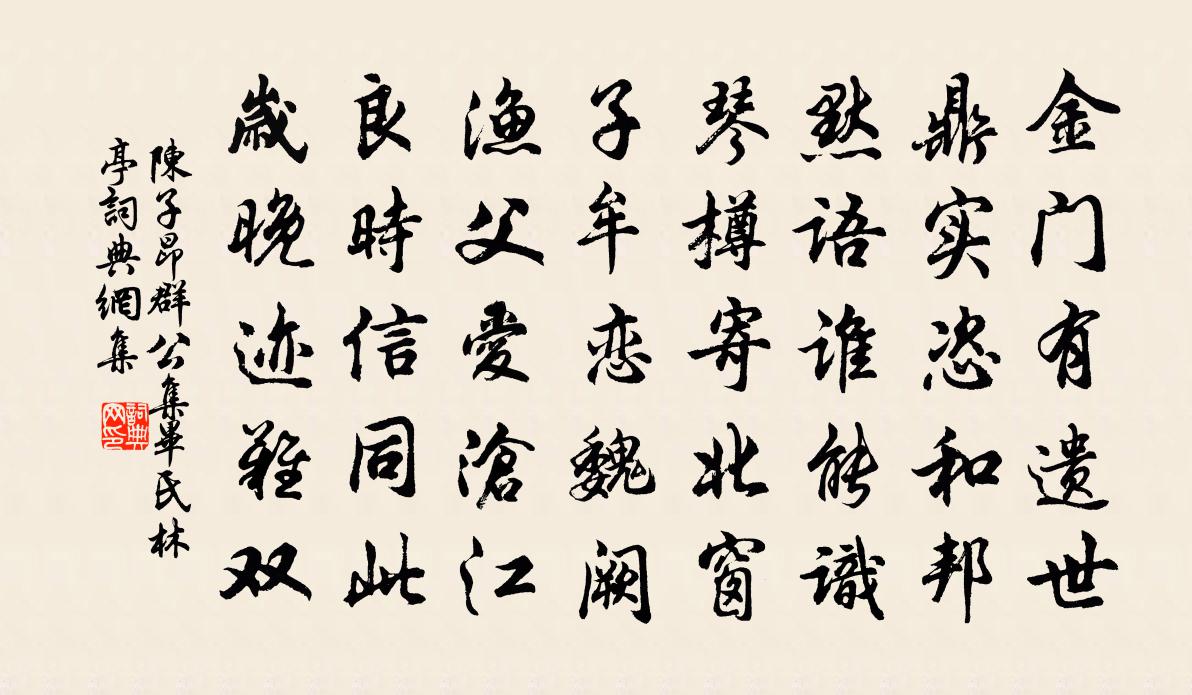 金门有遗世
鼎实恣和邦
默語谁能識
琴樽寄北窗
子牟恋魏阙
渔父愛滄江
良時信同此
歲晚迹難双
陳子昂群公集畢氏林
亭詞典網集
詞典网印